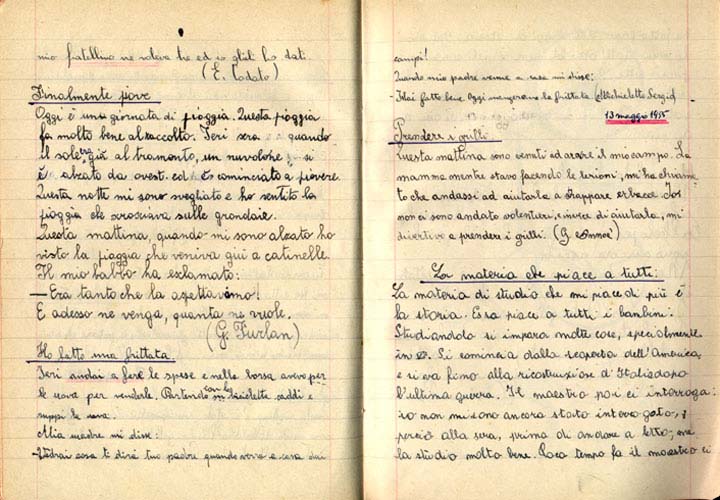 mio fratellino ne voleva tre ed io glieli ho dati.
(E. Codato)
Finalmente piove
Oggi è una giornata di pioggia. Questa pioggia
fa molto bene al raccolto. Ieri sera quando
il sole era già al tramonto, un nuvolone si
è alzato da ovest. ed è cominciato a piovere.
Questa notti mi sono svegliato e ho sentito la
pioggia che scrosciava sulle grondaie.
Questa mattina, quando mi sono alzato ho
visto la pioggia che veniva giù a catinelle.
Il mio babbo ha esclamato:
— Era tanto che la aspettavamo!
E adesso ne venga, quanta ne vuole.
(G. Furlan)
Ho fatto una frittata.
Ieri andai a fare le spese e nella borsa avevo per
le uova per venderle. Partendo con la bicicletta caddi e
ruppi le uova.
Mia madre mi disse:
— Vedrai cosa ti dirà tuo padre quando verrà a casa dai
campi!
Quando mio padre venne a casa mi disse:
— Hai fatto bene. Oggi mangeremo la frittata. (Michieletto Sergio)
13 maggio 1955
Prendere i grilli
Questa mattina sono venuti ad arare il mio campo. La
mamma mentre stavo facendo le lezioni, mi ha chiama-
to che andassi ad aiutarla a strappare erbacce. Io
non ci sono andato volentieri, e invece di aiutarla, mi
divertivo a prendere i grilli. (G.
La materia che piace a tutti:
La materia di studio che mi piace di più è
la storia. Essa piace a tutti i bambini:
Studiandola si impara molte cose, specialmente
in Si comincia dalla scoperta dell'America,
e si va fino alla ricostruzione d'Italia dopo
l'ultima guerra. Il maestro poi ci interroga:
io non mi sono ancora stato interrogato,
perciò alla sera, prima di andare a letto, me
la studio molto bene. Poco tempo fa il maestro ci